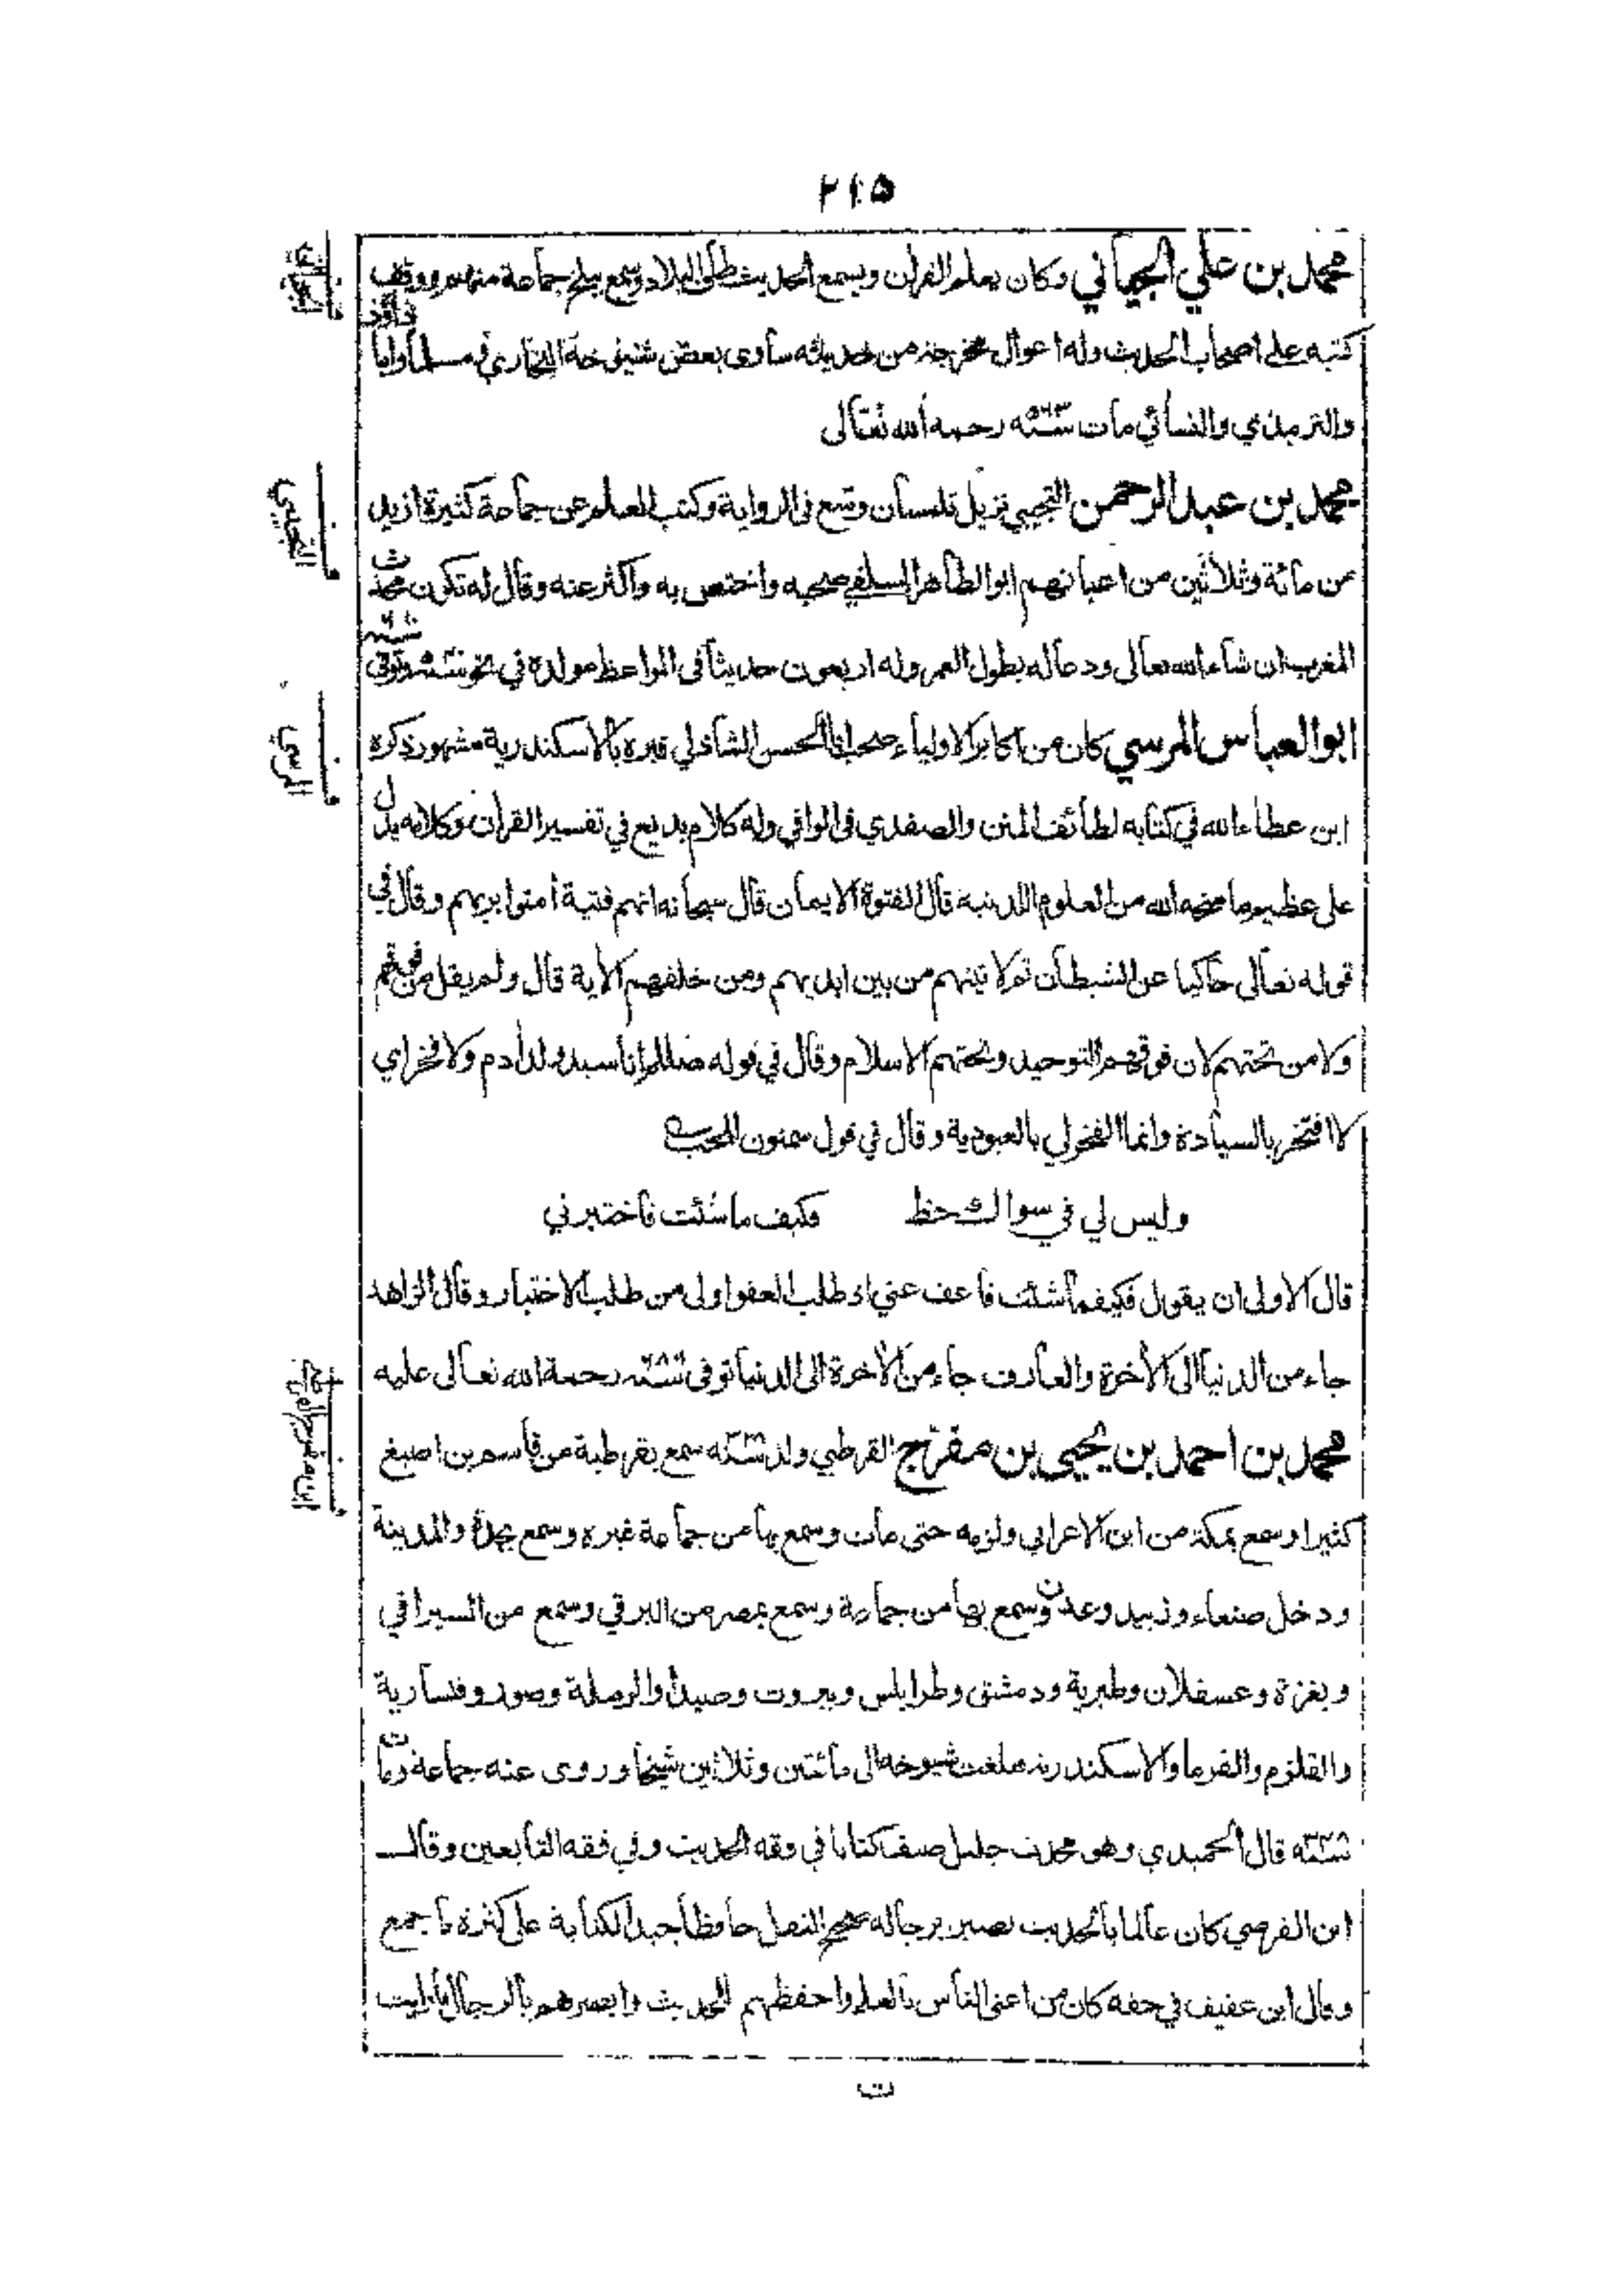 ٢١٥
محمد بن علي الجياني وكان يعلم القرآن ويسمع الحديث البلاد وسمع ببلخ جماعة منهم ووقف
كتبه على اصحاب الحديث وله اعوال مخرجة من حديثه ساوى بعض شيوخه البخاري ومسلما وابا
داود
والترمذي والنسائي مات سنة ٥٦٣ رحمه الله تعالى
محمد بن عبد الرحمن التجيبي نزيل تلمسان وتسع في الرواية وكتب العلم عن جماعة كثيرة ازيد
من مائة وثلاثين من اعيانهم ابو الطاهر السلفي صحبه واختص به واكثر عنه وقال له تكون محدث
المغرب ان شاء الله تعالى ودعا له بطول العمر وله اربعون حديثا في المواعظ مولده في نحو وتوفي
ابو العباس المرسي كان من اكابر الاولياء صحب ابا الحسن الشاذلي قبره بالاسكندرية مشهور ذكره
ابن عطاء الله في كتابه لطائف المنن والصفدي في الوافي وله كلام بديع في تفسير القرآن وكلامه يدل
على عظيم ما منحه الله من العلوم اللدنية قال الفتوة الايمان قال سبحانه انهم فتية آمنوا بربهم وقال في
قوله تعالى حاكيا عن الشيطان ثم لاتينهم من بين ايديهم ومن خلفهم الآية قال ولم يقل من فوقهم
ولا من تحتهم لان فوقهم التوحيد وتحتهم الاسلام وقال في قوله صللم انا سيد ولد آدم ولا فخر اي
لا افتخر بالسيادة وانما الفخر لي بالعبودية وقال في قول سمنون المحب
وليس لي في سواك حظ فكيف ما شئت فاختبرني
قال الاولى ان يقول فكيفما شئت فاعف عني اذ طلب العفو اولى من طلب الاختبار وقال الزاهد
جاء من الدنيا الى الآخرة والعارف جاء من الآخرة الى الدنيا توفي رحمة الله تعالى عليه
محمد بن احمد بن يحيى بن مفرّج القرطبي ولد سمع بقرطبة من قاسم بن اصبغ
كثيرا وسمع بمكة من ابن الاعرابي ولزمه حتى مات وسمع بها من جماعة غيره وسمع بجدة والمدينة
ودخل صنعاء وزبيد وعدن وسمع بها من جماعة وسمع بمصر من البرقي وسمع من السيرافي
وبغزة وعسقلان وطبرية ودمشق وطرابلس وبيروت وصيدا والرملة وصور وقيسارية
والقلزم والفرما والاسكندرية فبلغت شيوخه الى مائتين وثلاثين شيخا وروى عنه جماعة ومات
قال الحميدي وهو محدث جليل صنف كتابا في فقه الحديث وفي فقه التابعين وقال
ابن الفرضي كان عالما بالحديث بصير برجاله صحيح النقل حافظا جيد الكتابة على كثرة ما جمع
وقال ابن عفيف في حقه كان من اعنى الناس بالعلم واحفظهم للحديث وابصرهم بالرجال ما رايت
ت
الجياني
التجيبي
المرسي
ابن مفرج